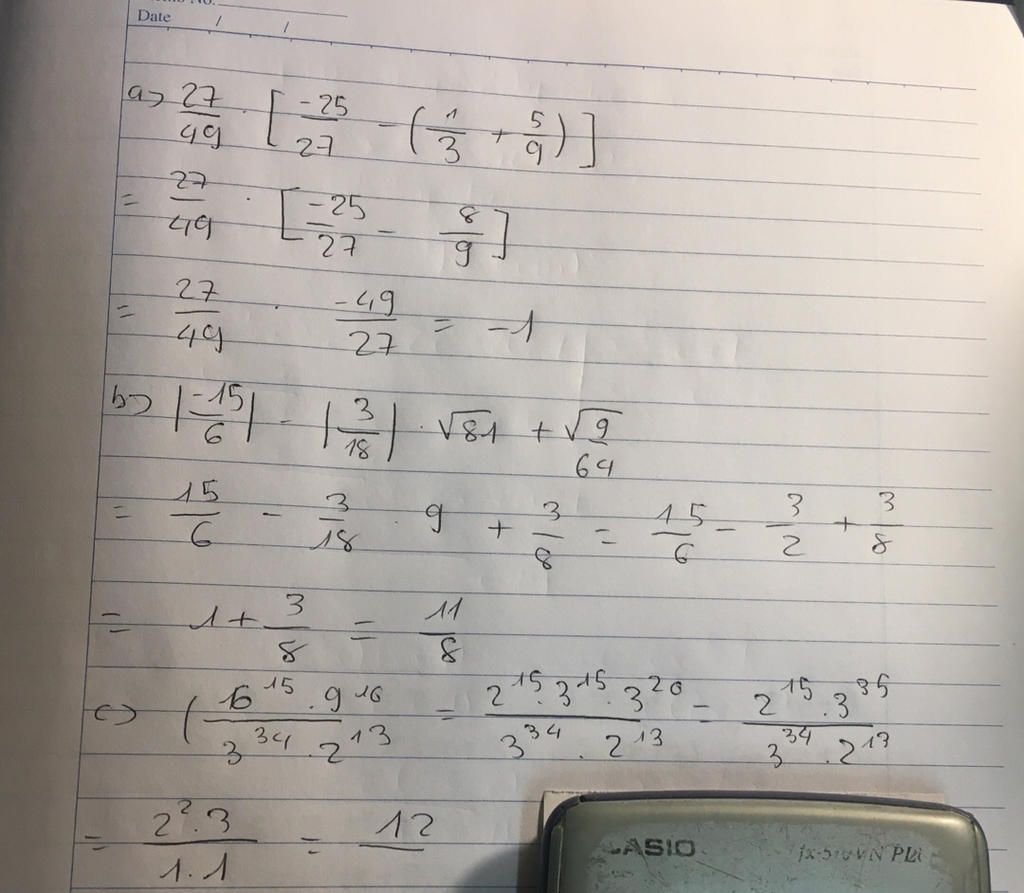 Date / /
a) 27/49 · [-25/27 - (1/3 + 5/9)]
= 27/49 · [-25/27 - 8/9]
= 27/49 · -49/27 = -1
b) |-15/6| - |3/18| · √81 + √9/64
= 15/6 - 3/18 · 9 + 3/8 = 15/6 - 3/2 + 3/8
= 1 + 3/8 = 11/8
c) (6^15 · 9^10 / 3^34 · 2^13 = 2^15 · 3^15 · 3^20 / 3^34 · 2^13 = 2^15 · 3^35 / 3^34 · 2^13
= 2^2 · 3 / 1 · 1 = 12
CASIO